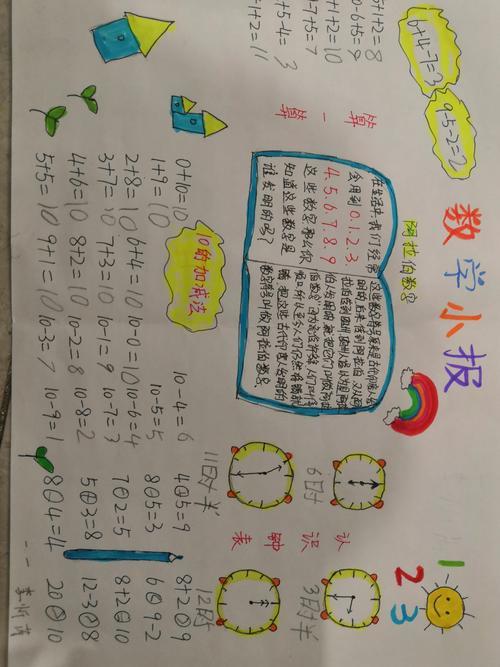 数学小报
1
2
3
6+4-7=3
9-5-2=2
算一算
5+1+2=8
0-6+5=9
+1+2=10
-7+5=7
+5-4=3
+1+2=11
阿拉伯数字
在生活中,我们经常
会用到0.1.2.3.
4.5.6.7.8.9
这些数字,那么你
知道这些数字是
谁发明的吗?
这些数字符号原来是古代印度人发
明的,后来传到阿拉伯,又从阿
拉伯传到欧洲,欧洲人误以为是阿拉
伯人发明的,就把它们叫做阿拉
伯数字,因为流传许多年,人们叫得
顺口,所以至今人们仍然将错就
错,把这些古代印度人发明的
数字符号叫做阿拉伯数字
认识钟表
6时
3时半
11时半
12时
10的加减法
0+10=10
1+9=10 10-4=6
2+8=10 6+4=10 10-0=10 10-6=4 10-5=5
3+7=10 7+3=10 10-1=9 10-7=3
4+6=10 8+2=10 10-2=8 10-8=2
5+5=10 9+1=10 10-3=7 10-9=1
4⊕5=9 8+2○9
8⊖5=3 6○9-2
7⊖2=5 8+2○10
5⊕3=8 12-3○8
8⊖4=4 20○10